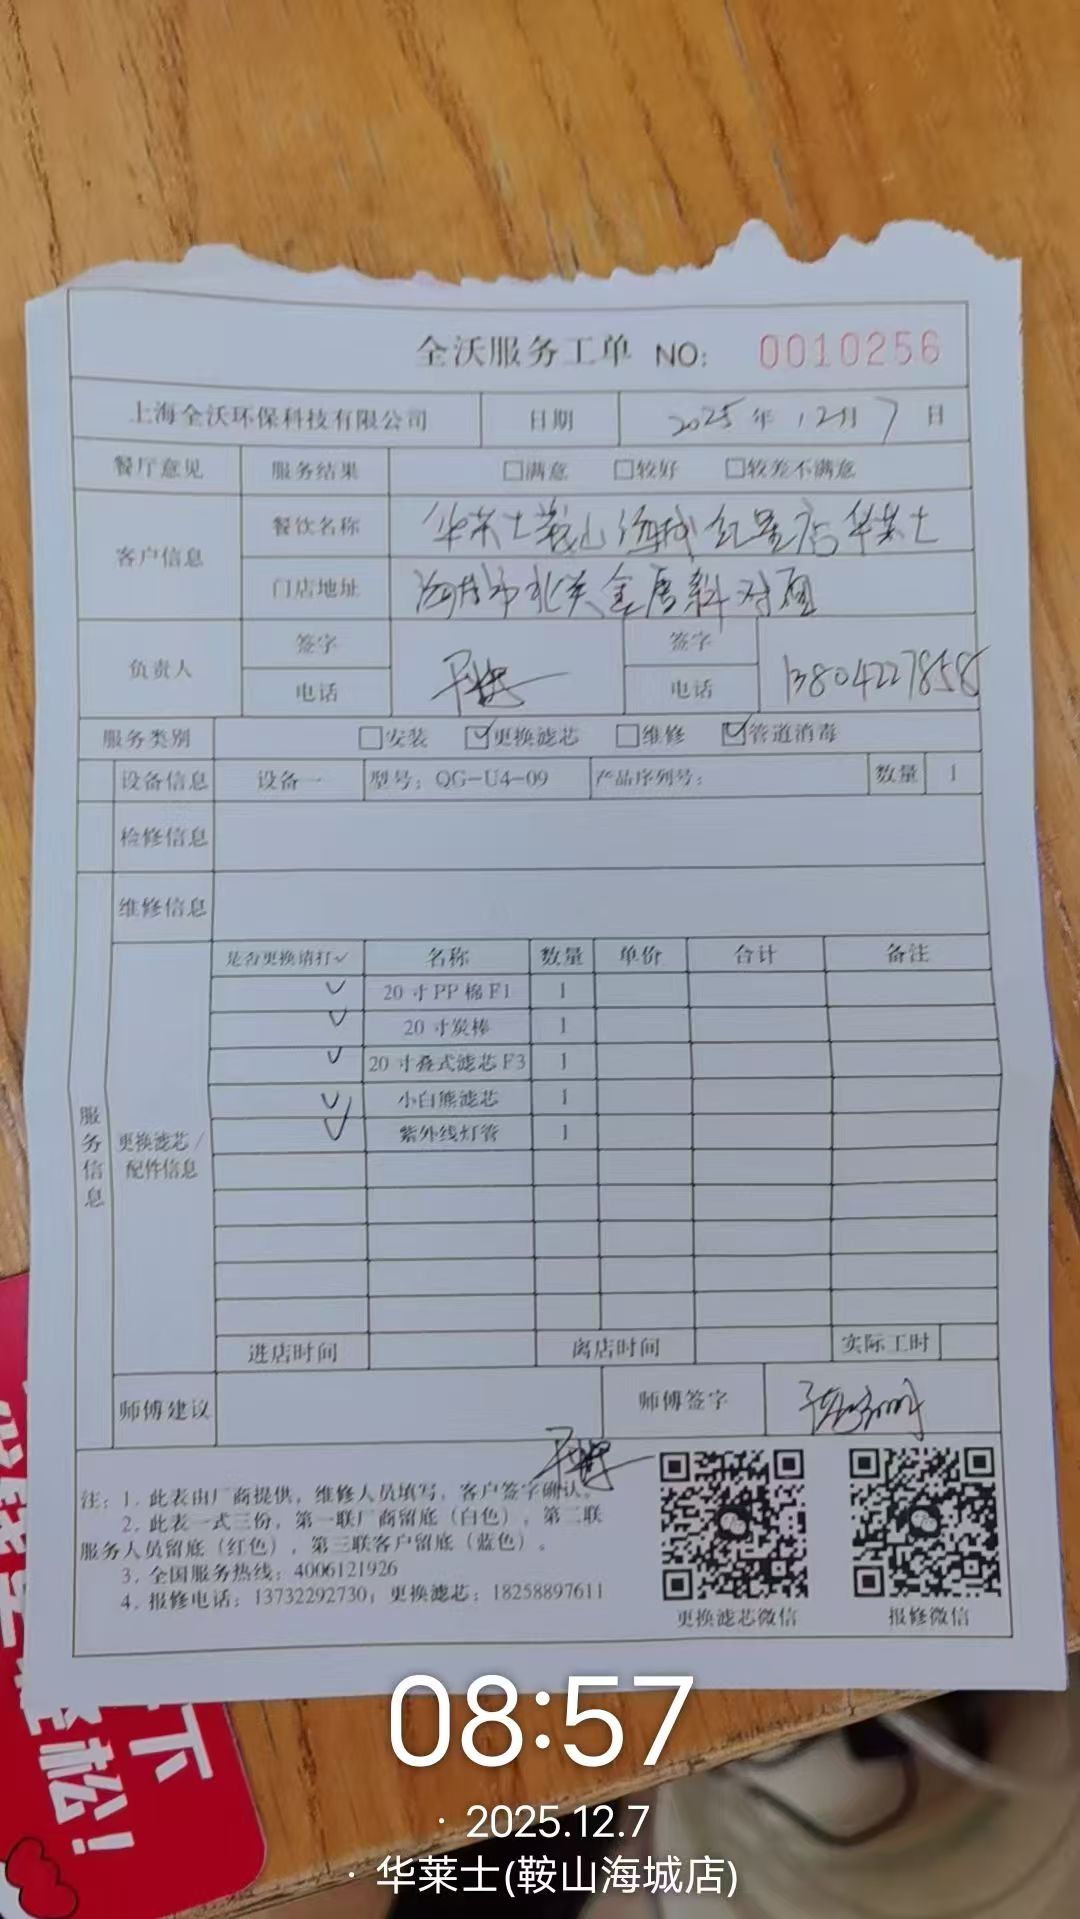 全沃服务工单 NO: 0010256
上海全沃环保科技有限公司 日期 2025年 12月 7日
餐厅意见 服务结果 □满意 □较好 □较差不满意
客户信息 餐饮名称 华莱士鞍山海城红星店华莱士
门店地址 海城市北关金唐 对面
负责人 签字 签字
电话 电话 13804227858
服务类别 □安装 ☑更换滤芯 □维修 ☑管道消毒
设备信息 设备一 型号：QG-U4-09 产品序列号： 数量 1
检修信息
维修信息
是否更换请打✓ 名称 数量 单价 合计 备注
✓ 20寸PP棉F1 1
✓ 20寸炭棒 1
✓ 20寸叠式滤芯F3 1
✓ 小白熊滤芯 1
✓ 紫外线灯管 1
服务信息
更换滤芯/
配件信息
进店时间 离店时间 实际工时
师傅建议 师傅签字
注：1. 此表由厂商提供，维修人员填写，客户签字确认。
2. 此表一式三份，第一联厂商留底（白色），第二联
服务人员留底（红色），第三联客户留底（蓝色）。
3. 全国服务热线：4006121926
4. 报修电话：13732292730；更换滤芯：18258897611
更换滤芯微信 报修微信
下
轻松！
08:57
· 2025.12.7
· 华莱士(鞍山海城店)